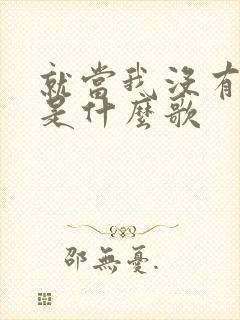 就當我沒有
是什麼歌
邵無憂.